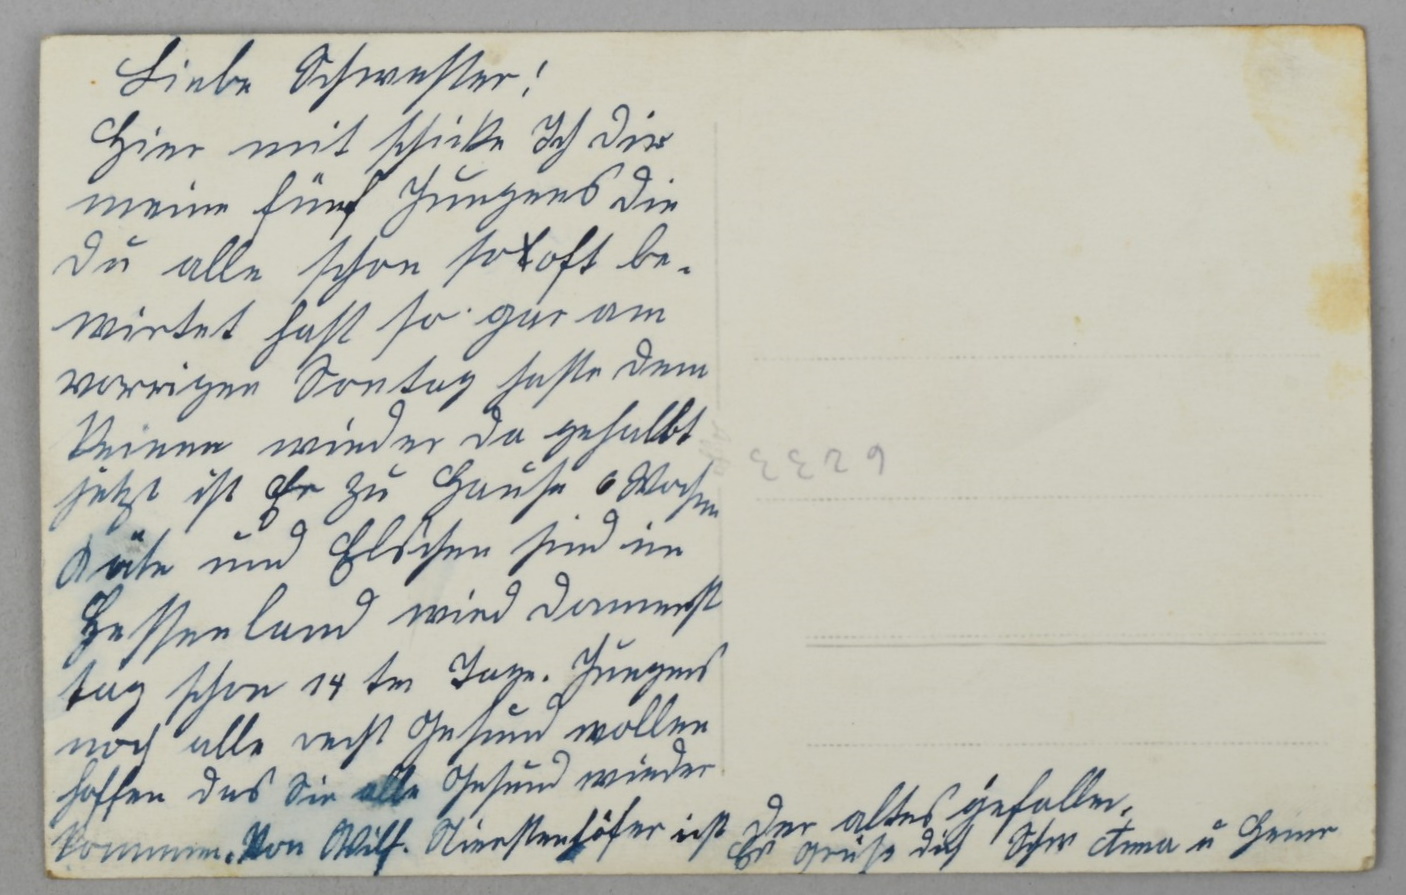 Liebe Schwester!
Hier mit schicke Ich dir
meine fünf Jungens die
du alle schon so oft be-
wirtet hast so gar am
vorrigen Sontag haste dem
keinen wieder da gehalbt
jetzt ist Er zu Hause 6 Wochen
Käte und Elschen sind im
Hessenland wird Donnerst
tag schon 14 te Tage. Jungens
noch alle recht Gesund wollen
hoffen das Sie alle Gesund wieder
kommen. Von Wilh. ist der altes gefallen.
Es grüßt dich Schw Anna u Heiner
6233